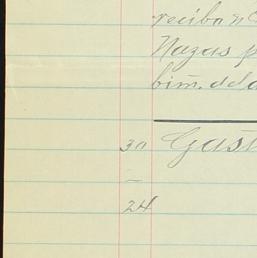 recibo n
Nazas p
bim. del
30 Gast
—
24